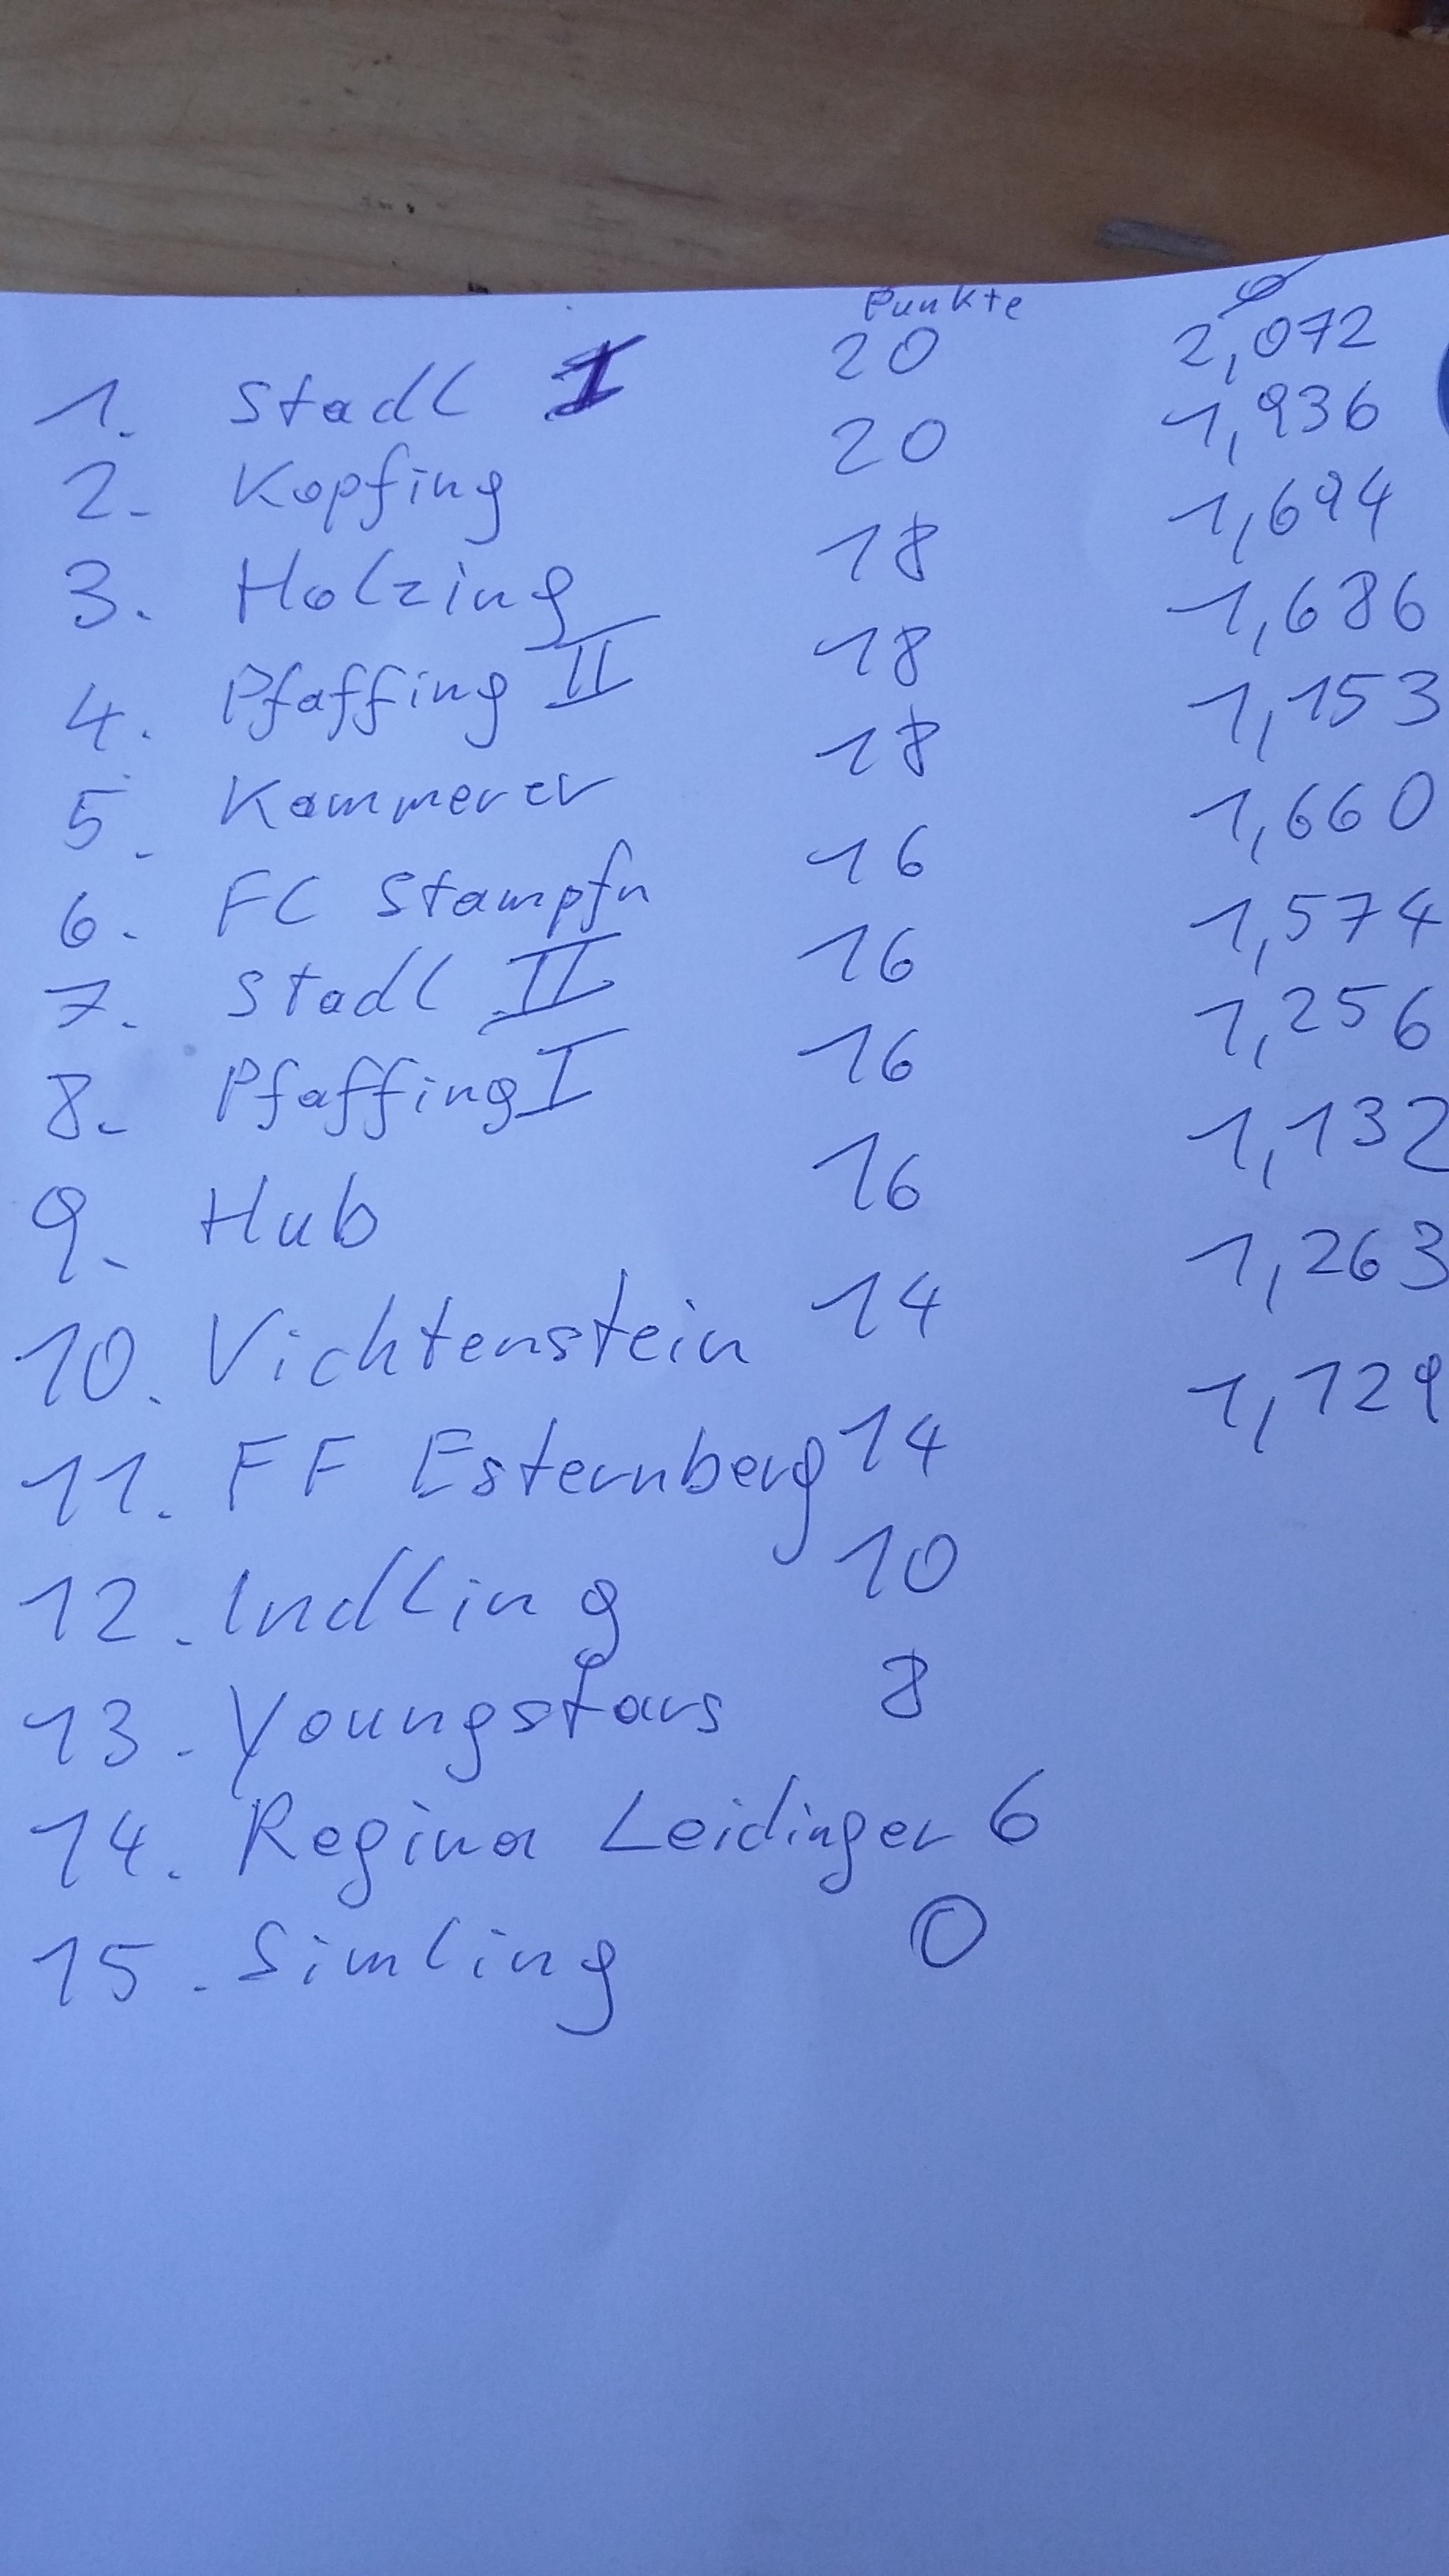 Punkte ⌀
1. Stadl I 20 2,072
2. Kopfing 20 1,936
3. Holzing 18 1,694
4. Pfaffing II 18 1,686
5. Kammerer 18 1,153
6. FC Stampfn 16 1,660
7. Stadl II 16 1,574
8. Pfaffing I 16 1,256
9. Hub 16 1,132
10. Vichtenstein 14 1,263
11. FF Esternberg 14 1,129
12. Indling 10
13. Youngstars 8
14. Regina Leidinger 6
15. Simling 0